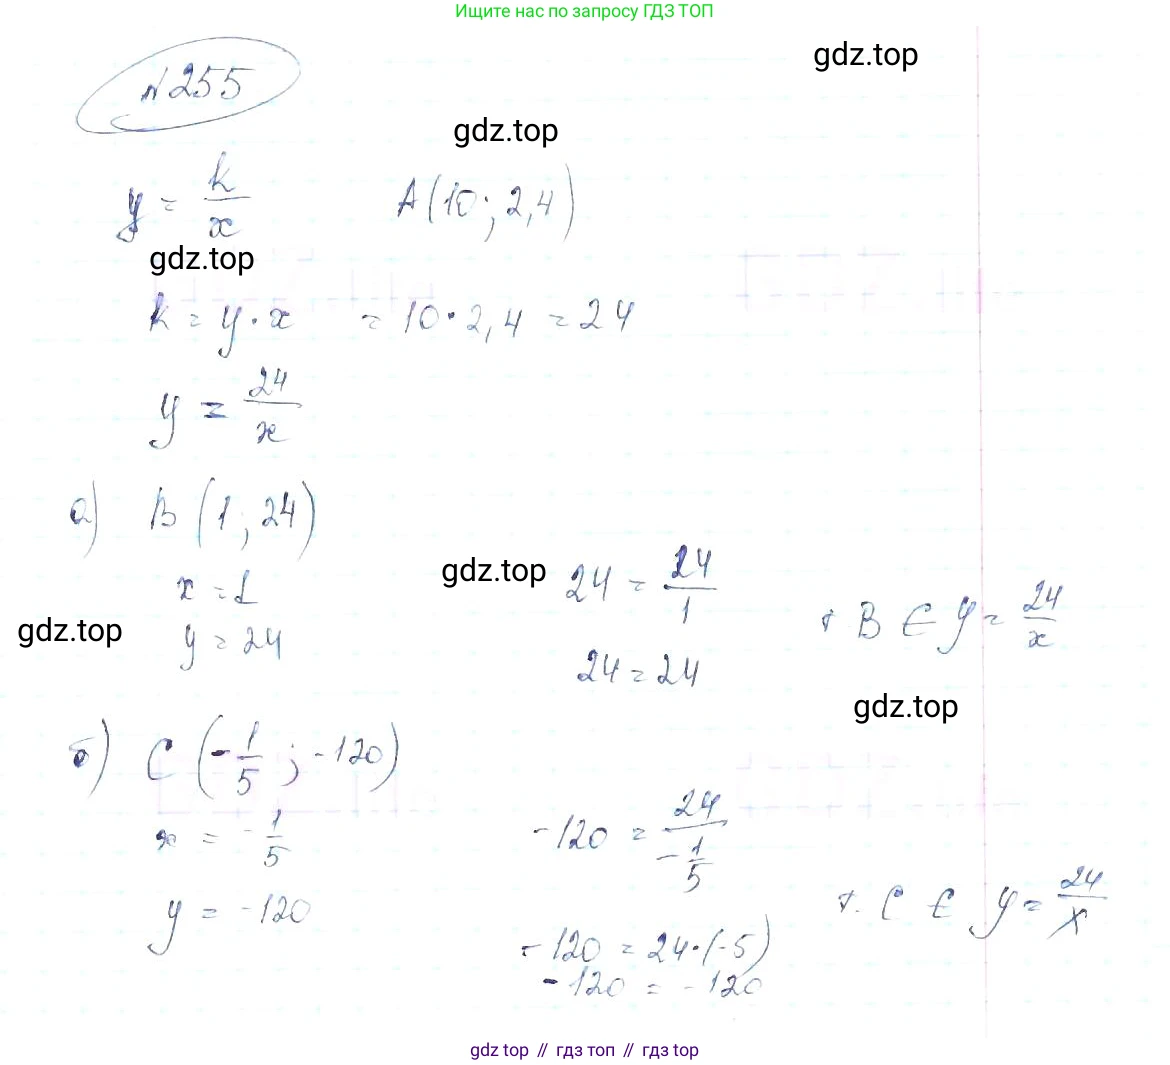 Ищите нас по запросу ГДЗ ТОП
gdz.top
№255
gdz.top
y = k/x A(10; 2,4)
gdz.top
k = y · x = 10 · 2,4 = 24
y = 24/x
а) B (1; 24)
gdz.top 24 = 24/1
x = 1
gdz.top y = 24 24 = 24 т B ∈ y = 24/x
gdz.top
б) C (-1/5; -120)
x = -1/5 -120 = 24/-1/5
y = -120 т. C ∈ y = 24/x
-120 = 24·(-5)
-120 = -120
gdz top // гдз топ // гдз top